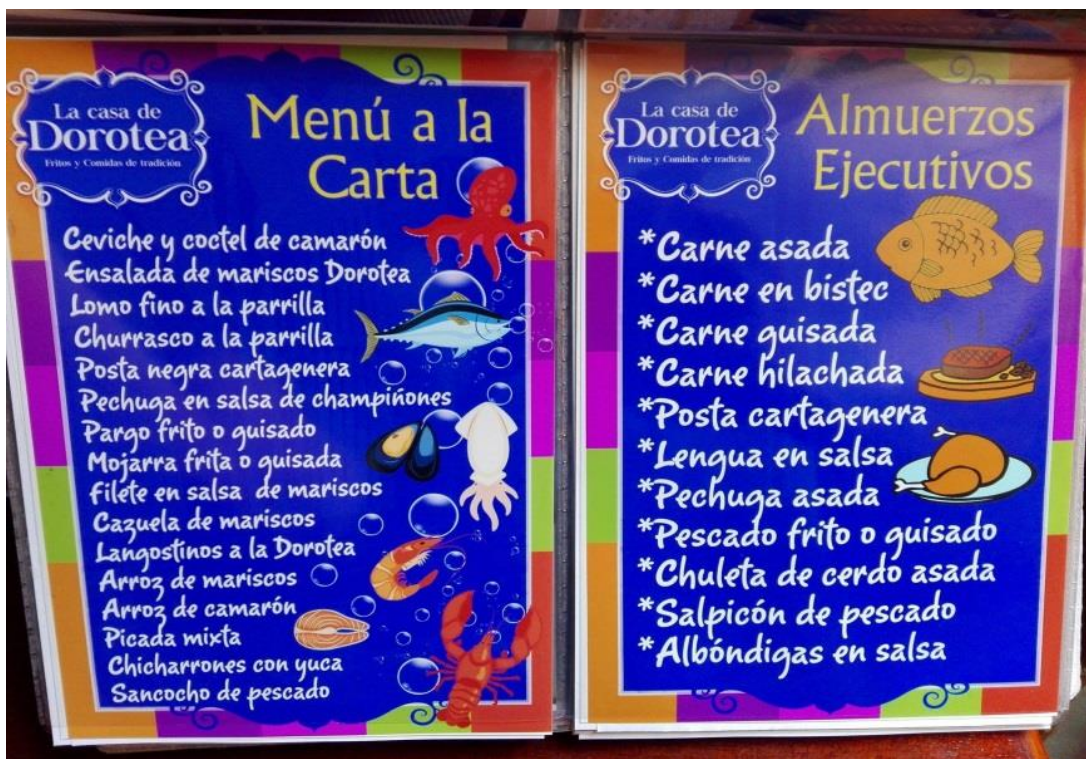 La casa de
Dorotea
Fritos y Comidas de tradición
Menú a la
Carta
Ceviche y coctel de camarón
Ensalada de mariscos Dorotea
Lomo fino a la parrilla
Churrasco a la parrilla
Posta negra cartagenera
Pechuga en salsa de champiñones
Pargo frito o guisado
Mojarra frita o guisada
filete en salsa de mariscos
Cazuela de mariscos
Langostinos a la Dorotea
Arroz de mariscos
Arroz de camarón
Picada mixta
Chicharrones con yuca
Sancocho de pescado
La casa de
Dorotea
Fritos y Comidas de tradición
Almuerzos
Ejecutivos
*Carne asada
*Carne en bistec
*Carne guisada
*Carne hilachada
*Posta cartagenera
*Lengua en salsa
*Pechuga asada
*Pescado frito o guisado
*Chuleta de cerdo asada
*Salpicón de pescado
*Albóndigas en salsa